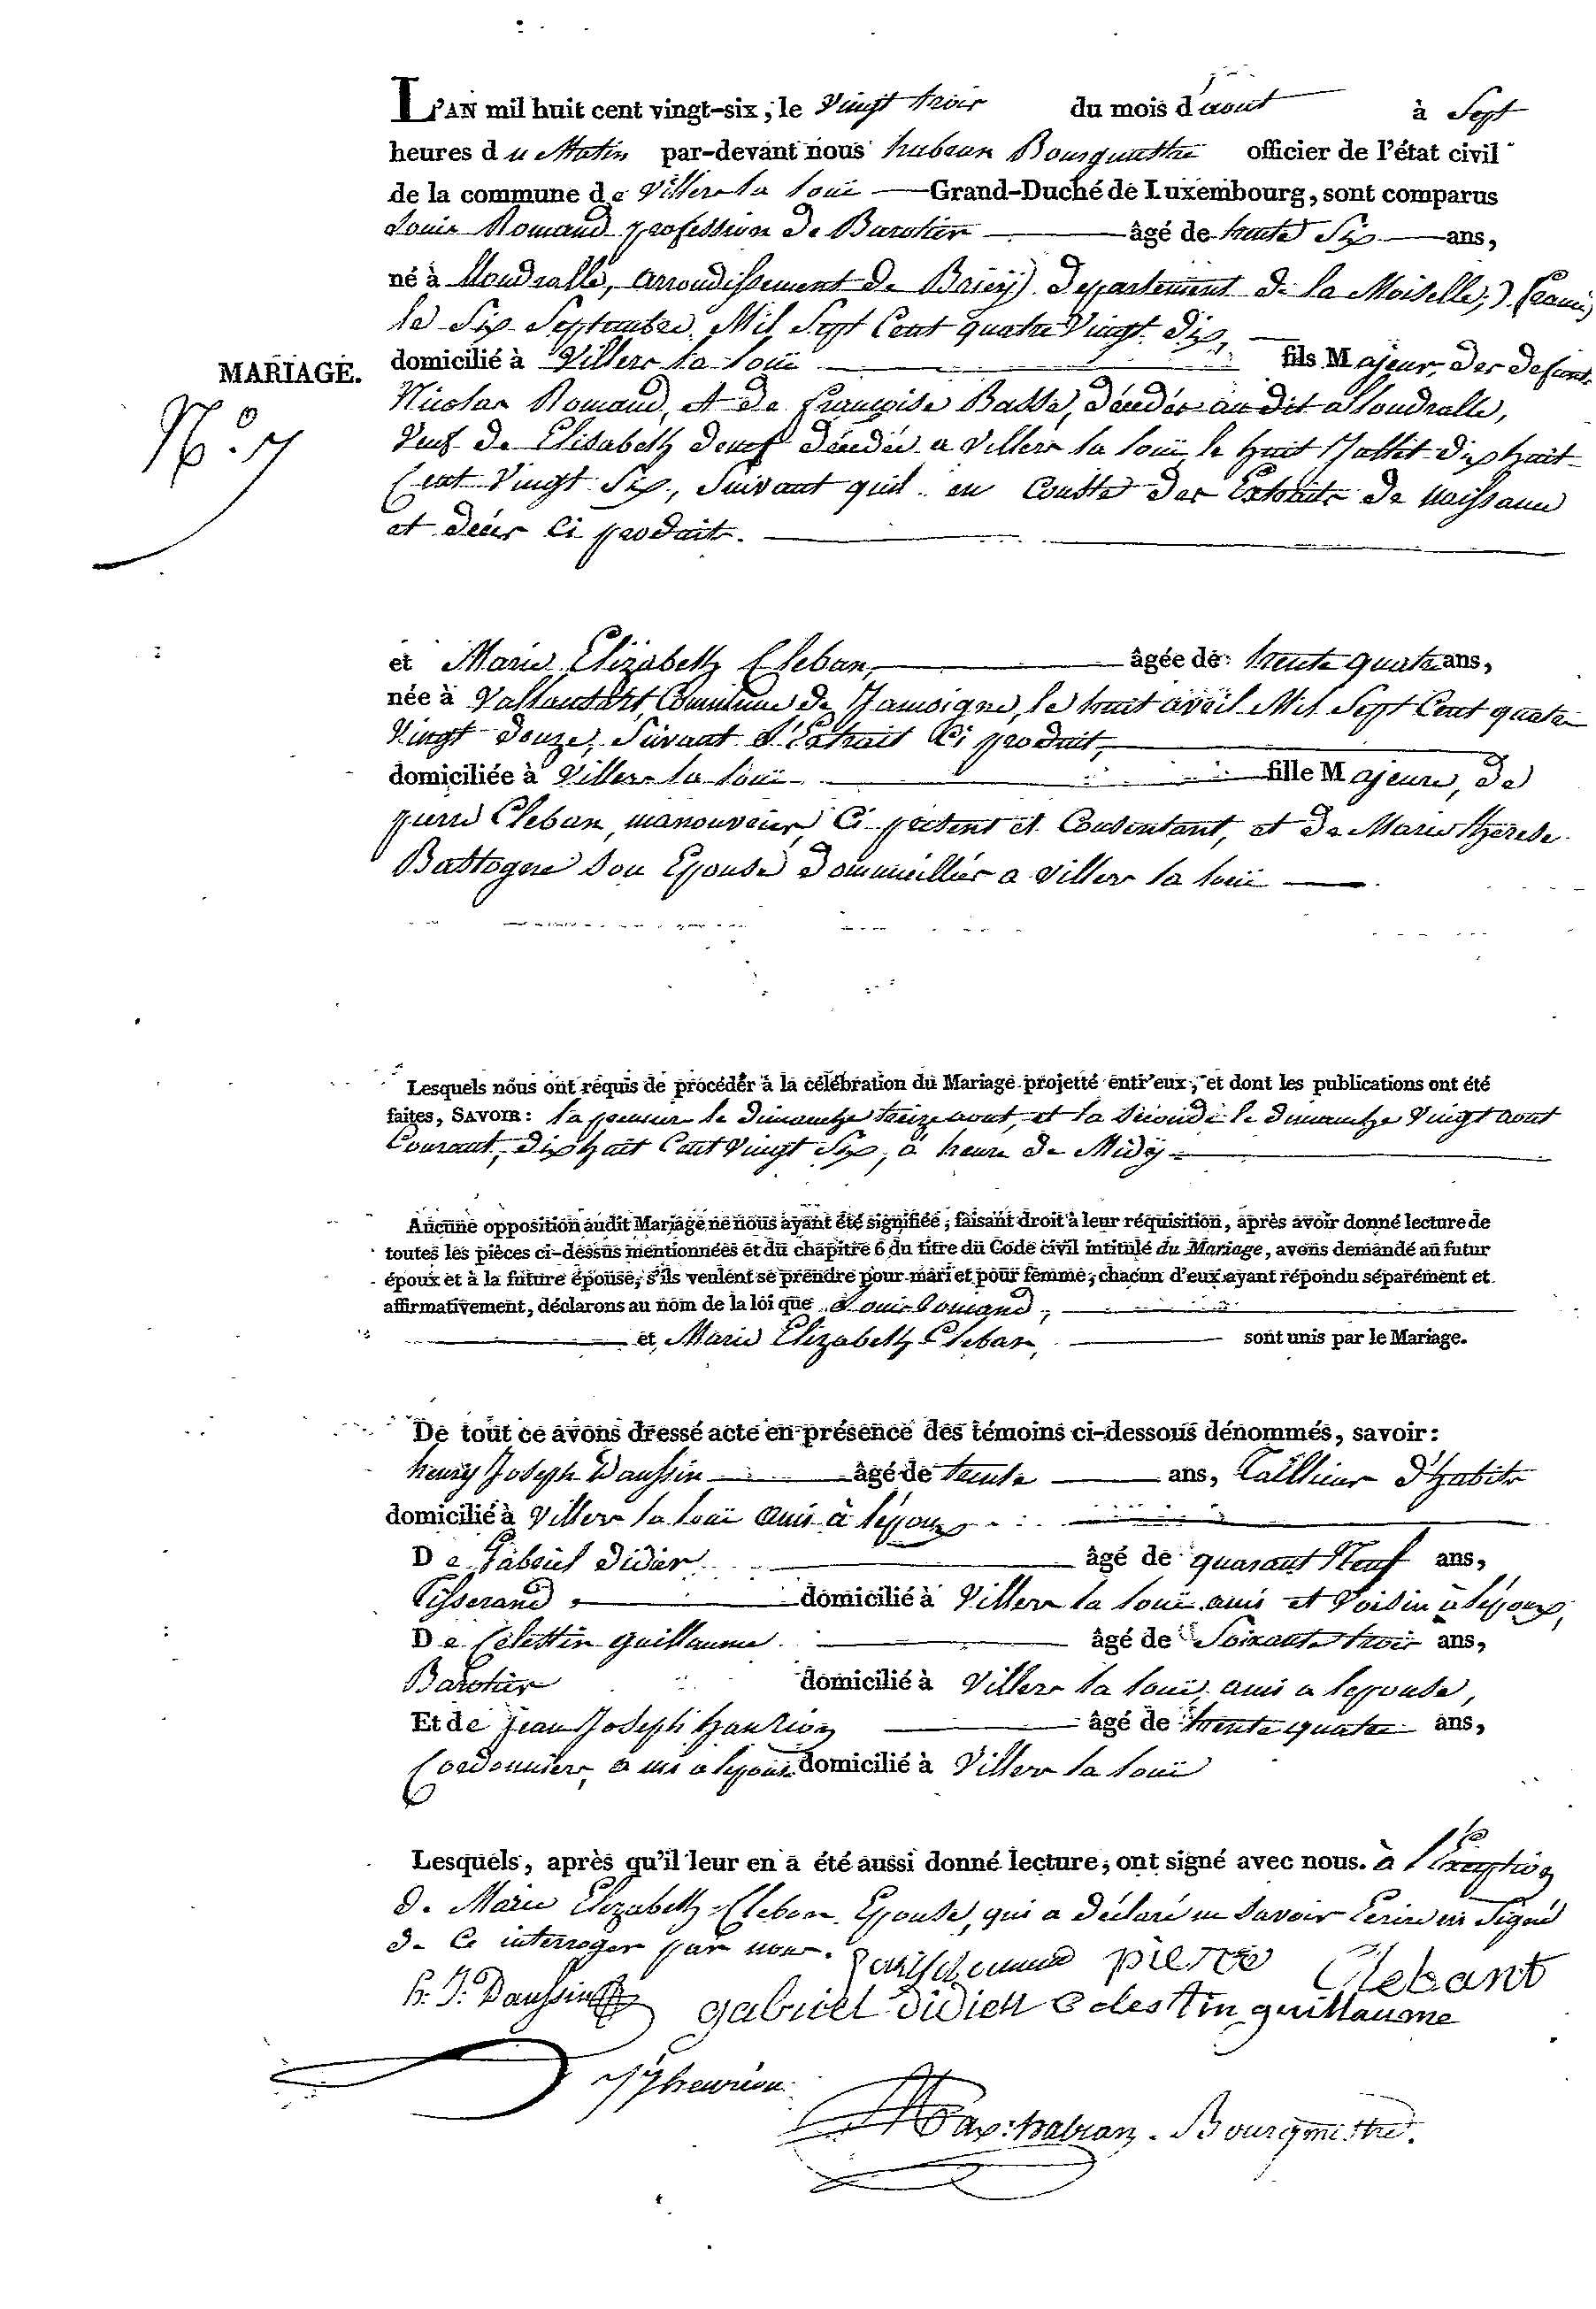 L'AN mil huit cent vingt-six, le vingt trois du mois d'aout à Sept
heures du Matin par-devant nous habran Bourgmettre officier de l'état civil
de la commune de Villers la loüe Grand-Duché de Luxembourg, sont comparus
Louis Romand profession de Barotier âgé de trente Six ans,
né à arrondissement de Brieÿ departement de la Moiselle,
le Six Septembre Mil Sept Cent quatre Vingt dix,
MARIAGE. domicilié à Villers la loüe fils Majeur, des defunts
N.º 7
Nicolas Romand, et de françoise Basse, décédés au dit
Veuf de Elisabeth décédée a Villers la loüe le huit Jullet dix huit
Cent Vingt Six, Suivant quil en Conste des Extraits de naissance
et décès Ci produits.
et Marie Elizabeth Cleban, âgée de trente quatre ans,
née à Vallansart, Commune de Jamoigne, le huit avril Mil Sept Cent quatre
Vingt douze, Suivant l'Extrait Ci produit,
domiciliée à Villers la loüe fille Majeure, de
pierre Cleban, manouvrier, Ci présent et Consentant, et de Marie therese
Bastogne son Epouse domicilliés a Villers la loüe
Lesquels nous ont requis de procéder à la célébration du Mariage projetté entr'eux, et dont les publications ont été
faites, SAVOIR : la premier le dimanche treize aout, et la seconde le dimanche Vingt aout
Courant, dix huit Cent Vingt Six, à heure de Midÿ
Aucune opposition audit Mariage ne nous ayant été signifiée ; faisant droit à leur réquisition, après avoir donné lecture de
toutes les pièces ci-dessus mentionnées et du chapitre 6 du titre du Code civil intitulé du Mariage, avons demandé au futur
époux et à la future épouse, s'ils veulent se prendre pour mari et pour femme ; chacun d'eux ayant répondu séparément et
affirmativement, déclarons au nom de la loi que Louis Romand,
et Marie Elizabeth Cleban, sont unis par le Mariage.
De tout ce avons dressé acte en présence des témoins ci-dessous dénommés, savoir :
henry Joseph Daussin âgé de trente ans, Taillieur d'habits
domicilié à Villers la loüe amis à l'époux
De Gabriel Didier âgé de quarant Neuf ans,
Tisserand domicilié à Villers la loüe amis et Voisin à l'époux,
De Celettin guillaume âgé de Soixante trois ans,
Barotier domicilié à Villers la loüe, amis a lepouse,
Et de jean Joseph hanrion âgé de trente quatre ans,
Cordonnier, amis a lepouse domicilié à Villers la loüe
Lesquels, après qu'il leur en a été aussi donné lecture, ont signé avec nous. à l'Exception
de Marie Elizabeth Cleban Epouse, qui a déclaré ne savoir Ecrire ni Signé
de Ce interroger par nous. pierre Clebant
h. J. Daussin gabriel didier Celestin guillaume
JJ henrion
habran Bourgmettre.